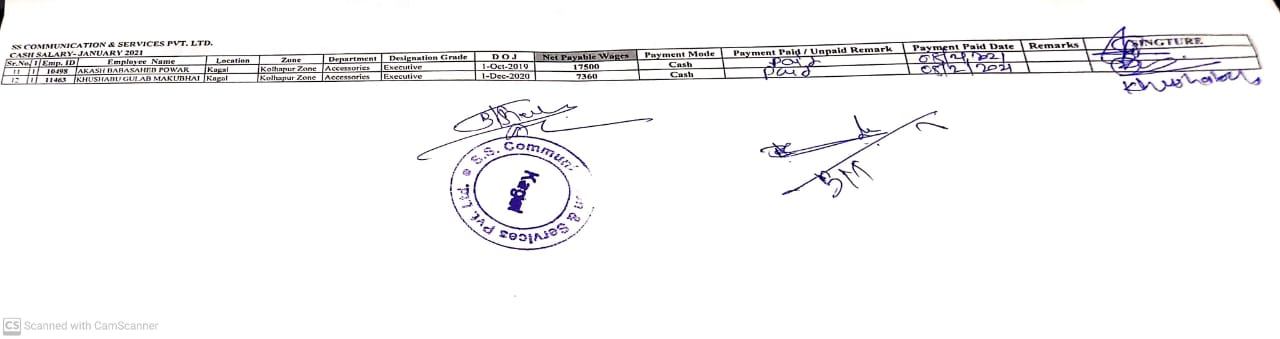 SS COMMUNICATION & SERVICES PVT. LTD.
CASH SALARY- JANUARY 2021
Sr.No. 1 Emp. ID Employee Name Location Zone Department Designation Grade D O J Net Payable Wages Payment Mode Payment Paid / Unpaid Remark Payment Paid Date Remarks INGTURE
11 1 10498 AKASH BABASAHEB POWAR Kagal Kolhapur Zone Accessories Executive 1-Oct-2019 17500 Cash paid
12 1 11463 KHUSHABU GULAB MAKUBHAI Kagal Kolhapur Zone Accessories Executive 1-Dec-2020 7360 Cash paid 08/2/2021
Khushabu
S.S. Communi on & Services Pvt. Ltd.
Kagal
BM
CS Scanned with CamScanner